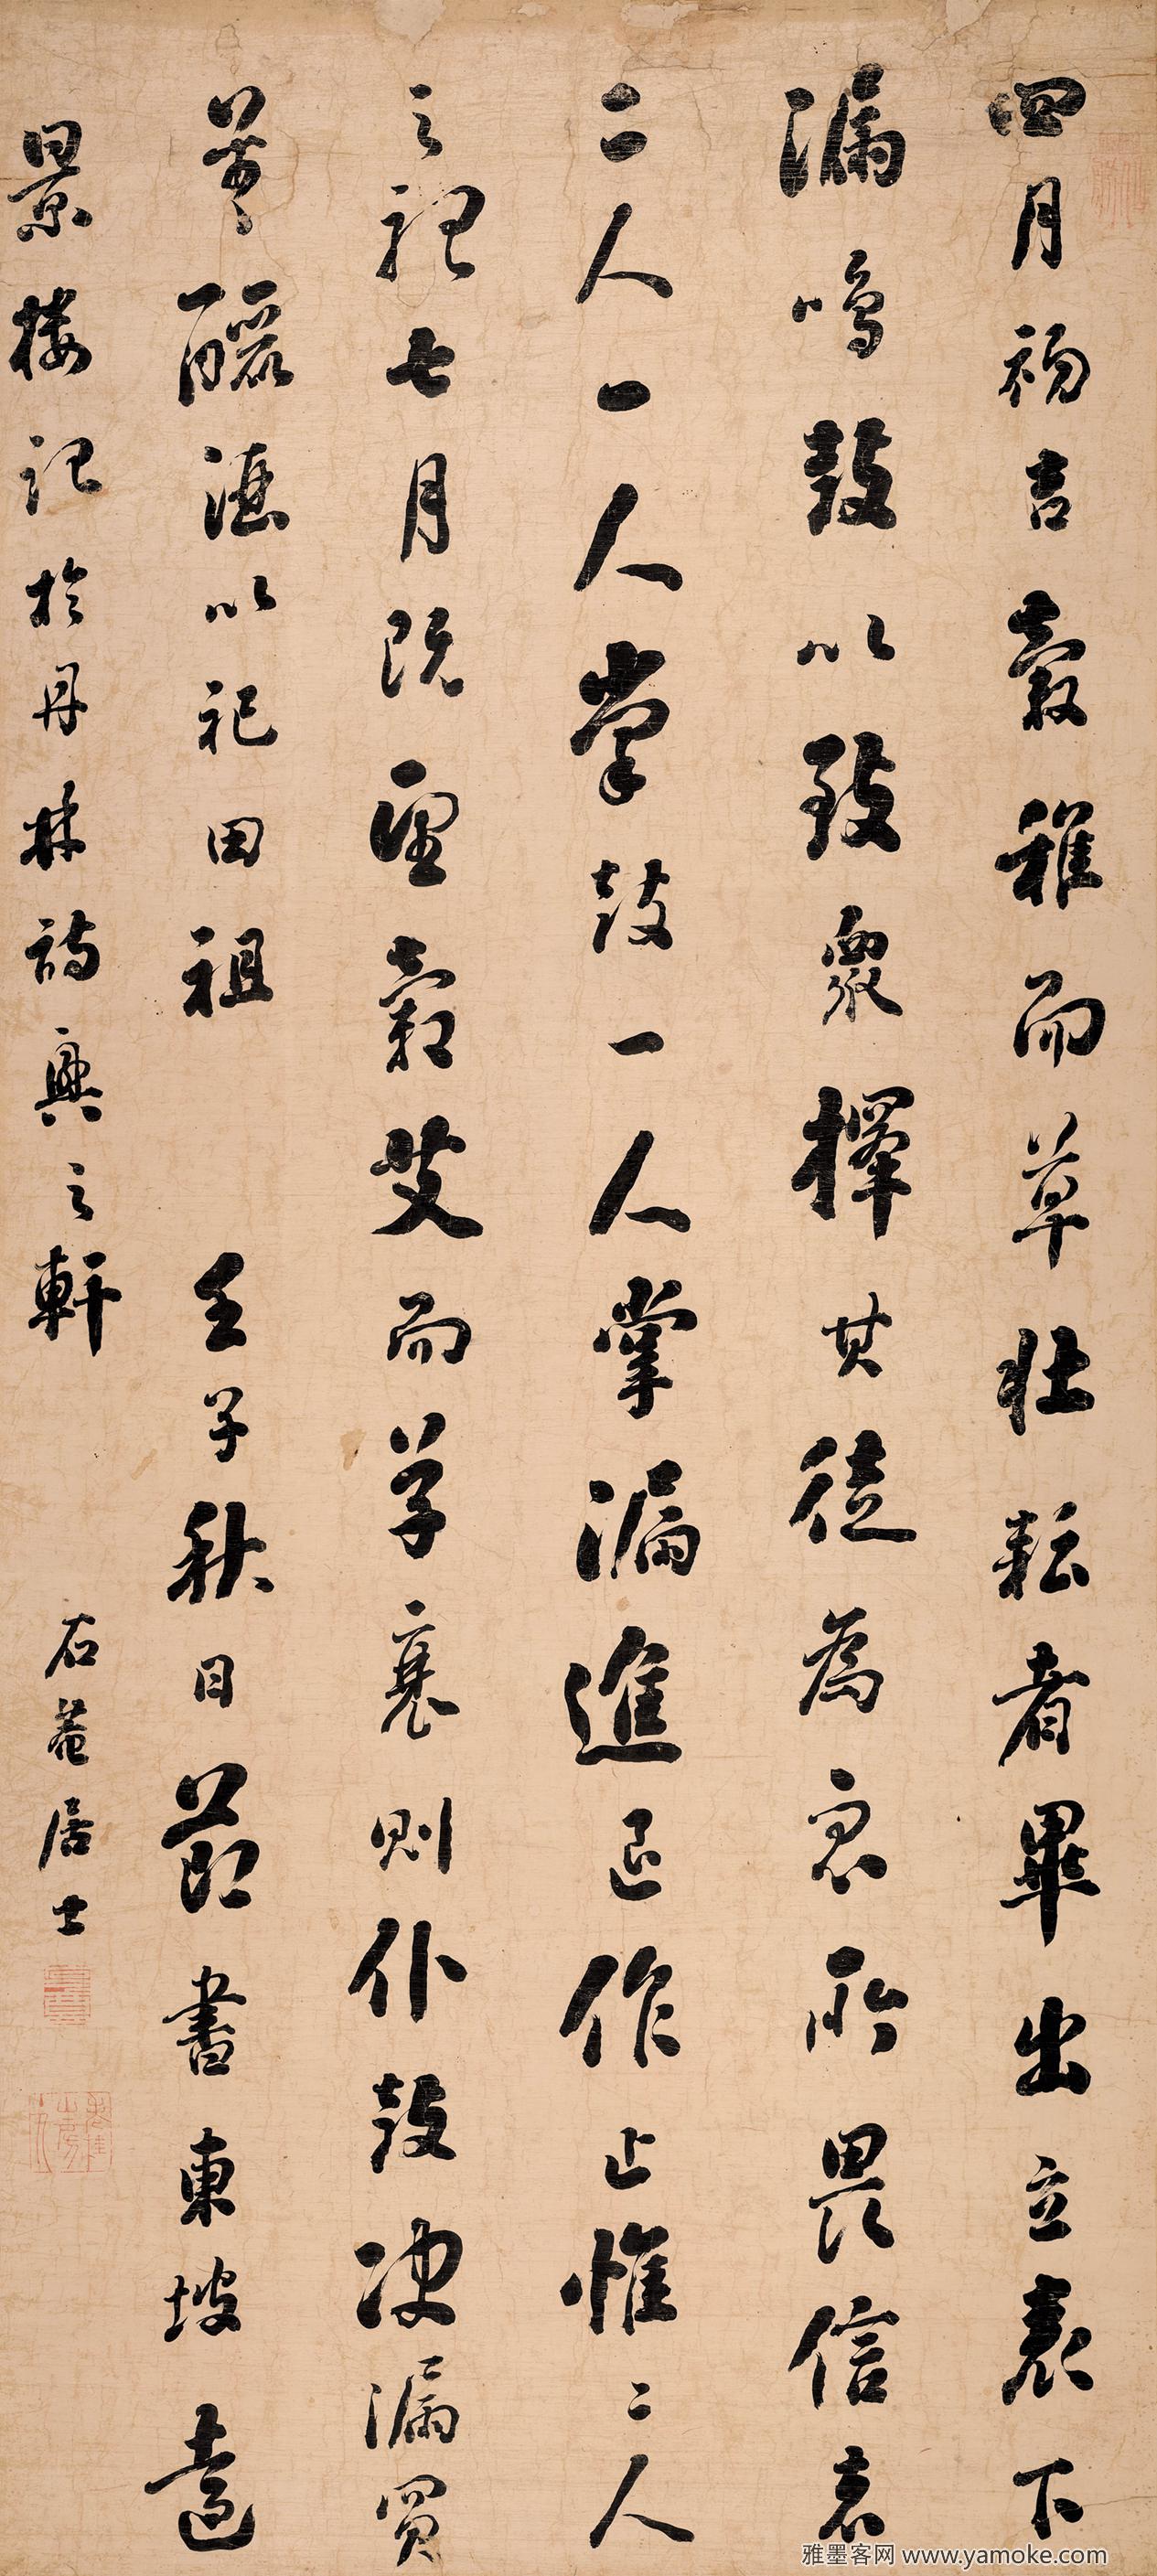 四月初吉穀稚而草壯耘者畢出立表下
漏鳴鼓以致衆擇其徒為衆所畏信者
二人一人掌鼓一人掌漏進退作止惟二人
之聽七月既望穀艾而草衰則仆鼓决漏買
羊釃酒以祀田祖 壬子秋日節書東坡遠
景樓記於丹林詩興之軒 石菴居士
雅墨客网 www.yamoke.com